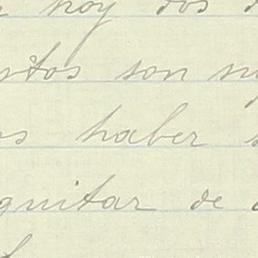 hoy dos
stos son
haber
quitar de